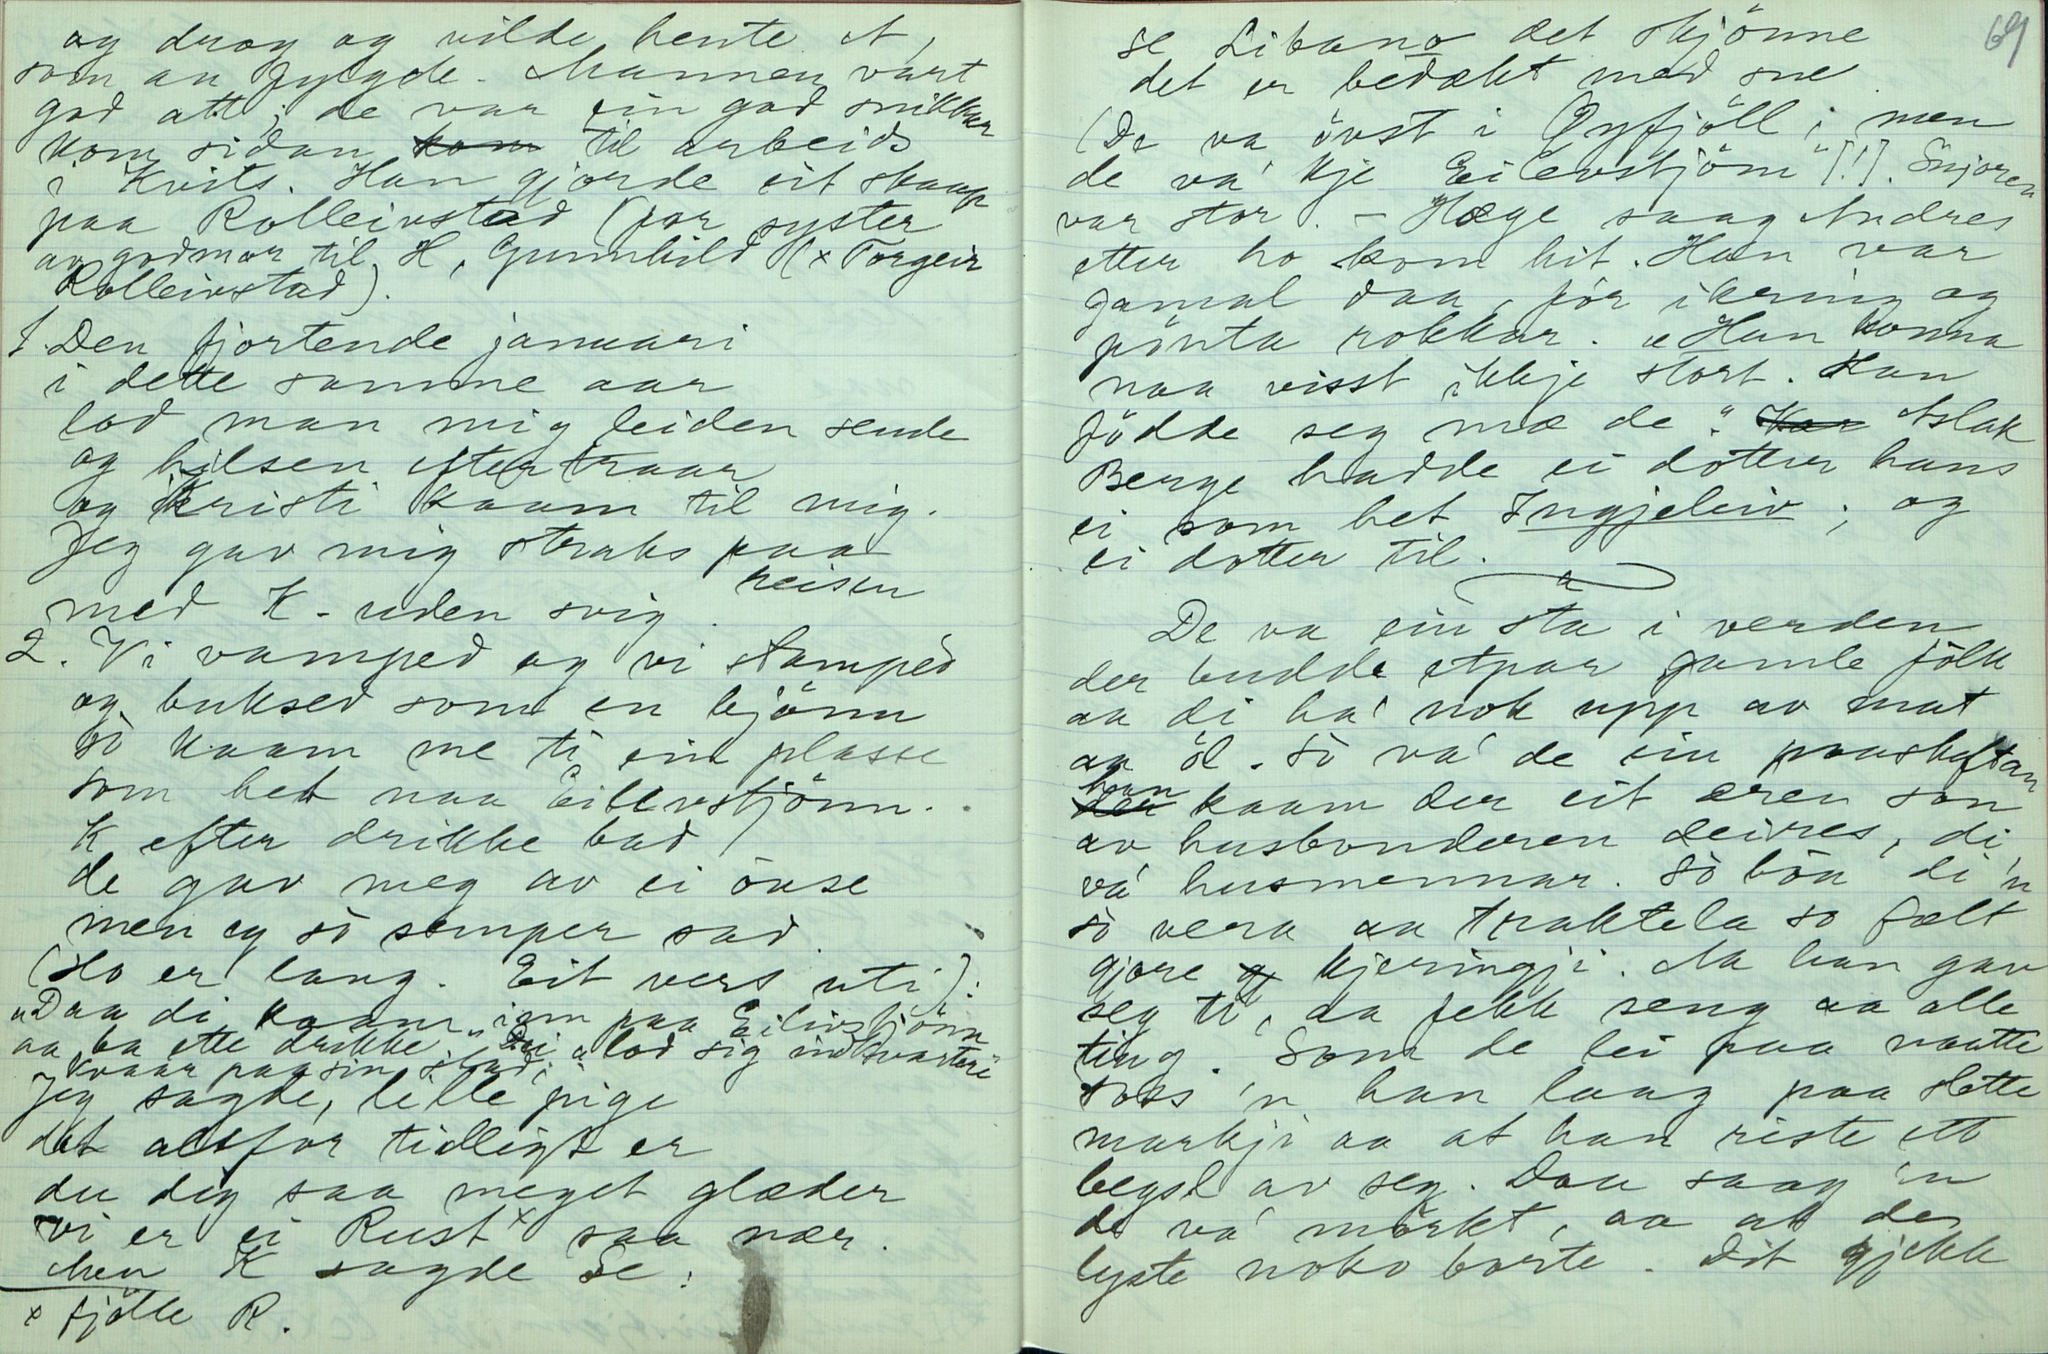 og drog og vilde hente et,
som an fylgde. Mannen vart
god att; de var ein god snikkar
kom sidan kom til arbeids
i Kvits. Han gjorde eit skaap
paa Rolleivstad (for syster
av godmor til H, Gunnhild (x Torgeir
Rolleivstad).
1. Den fjortende januari
i dette samme aar
lod man mig leiden sende
og hilsen efter traar
og Kristi kaam til mig.
Jeg gav mig straks paa
reisen
med K. uden svig.
2. Vi vamped og vi stamped
og buksed som en bjönn
so kaam me ti ein plasse
som het naa Eilevstjönn.
K efter drikke bad
de gav meg av ei öuse
men eg so semper sad.
(Ho er lang. Eit vers uti):
"Daa di kaam inn paa Eilivstjönn
aa ba ette drikke". Dei "lod sig indkvarteri
kvaar paa sin stad;
Jeg sagde, lille pige
det altfor tidligt er
du dig saa meget glæder
vi er ei Rust x saa nær.
Men K sagde Se:
x fjölle R.
69
se Libano det skjönne
det er bedækt med sne
(De va övst i Öyfjöll; men
de va' kje Eilevstjönn" [!]. Snjoren
var stor. – Hæge saag Andres
etter ho kom hit. Han var
gamal daa, för ikring og
pönta rokkar. "Han konna
naa visst ikkje stort. Han
födde seg mæ de". Kar Aslak
Berge hadde ei dotter hans
ei som het Ingjeleiv; og
ei dotter til.
De va ein sta i verden
der budde etpar gamle fölk
aa di ha' nok upp av mat
aa öl. So va' de ein paaskeftan
den haan kaam der eit æren son
av husbonderen deires, di
va' husmennar. So böu di 'n
so vera aa traktela so fælt
gjore og kjeringji. Aa han gav
seg ti, aa fekk seng aa alle
ting. Som de lei paa naatte
toss 'n han laag paa slette
markji aa at han riste ett
beysl av seg. Daa saag 'n
de va' mörkt, aa at de
lyste noko borte. Dit gjekk